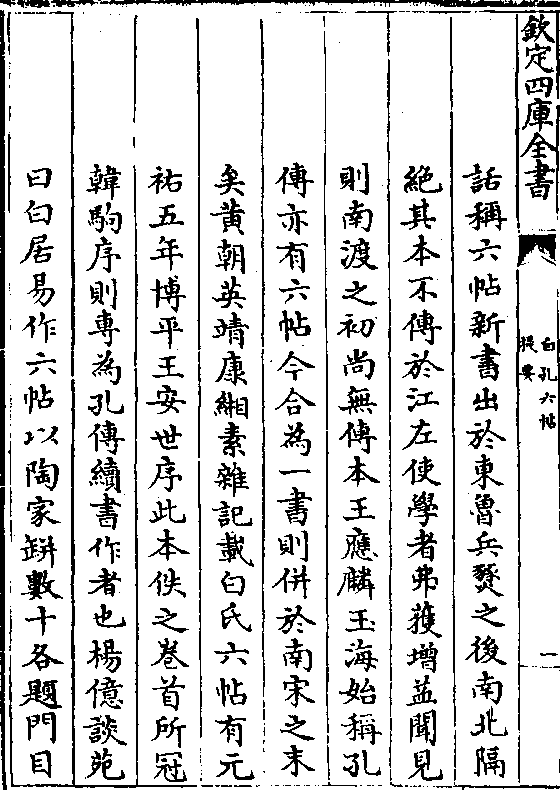 欽定四庫全書
白孔六帖
提要
一
話稱六帖新書出於東魯兵燹之後南北隔
絶其本不傳於江左使學者弗獲增益聞見
則南渡之初尚無傳本王應麟玉海始稱孔
傳亦有六帖今合為一書則併於南宋之末
矣黄朝英靖康緗素雜記載白氏六帖有元
祐五年博平王安世序此本佚之卷首所冠
韓駒序則専為孔傳續書作者也楊億談苑
曰白居易作六帖以陶家缾數十各題門目